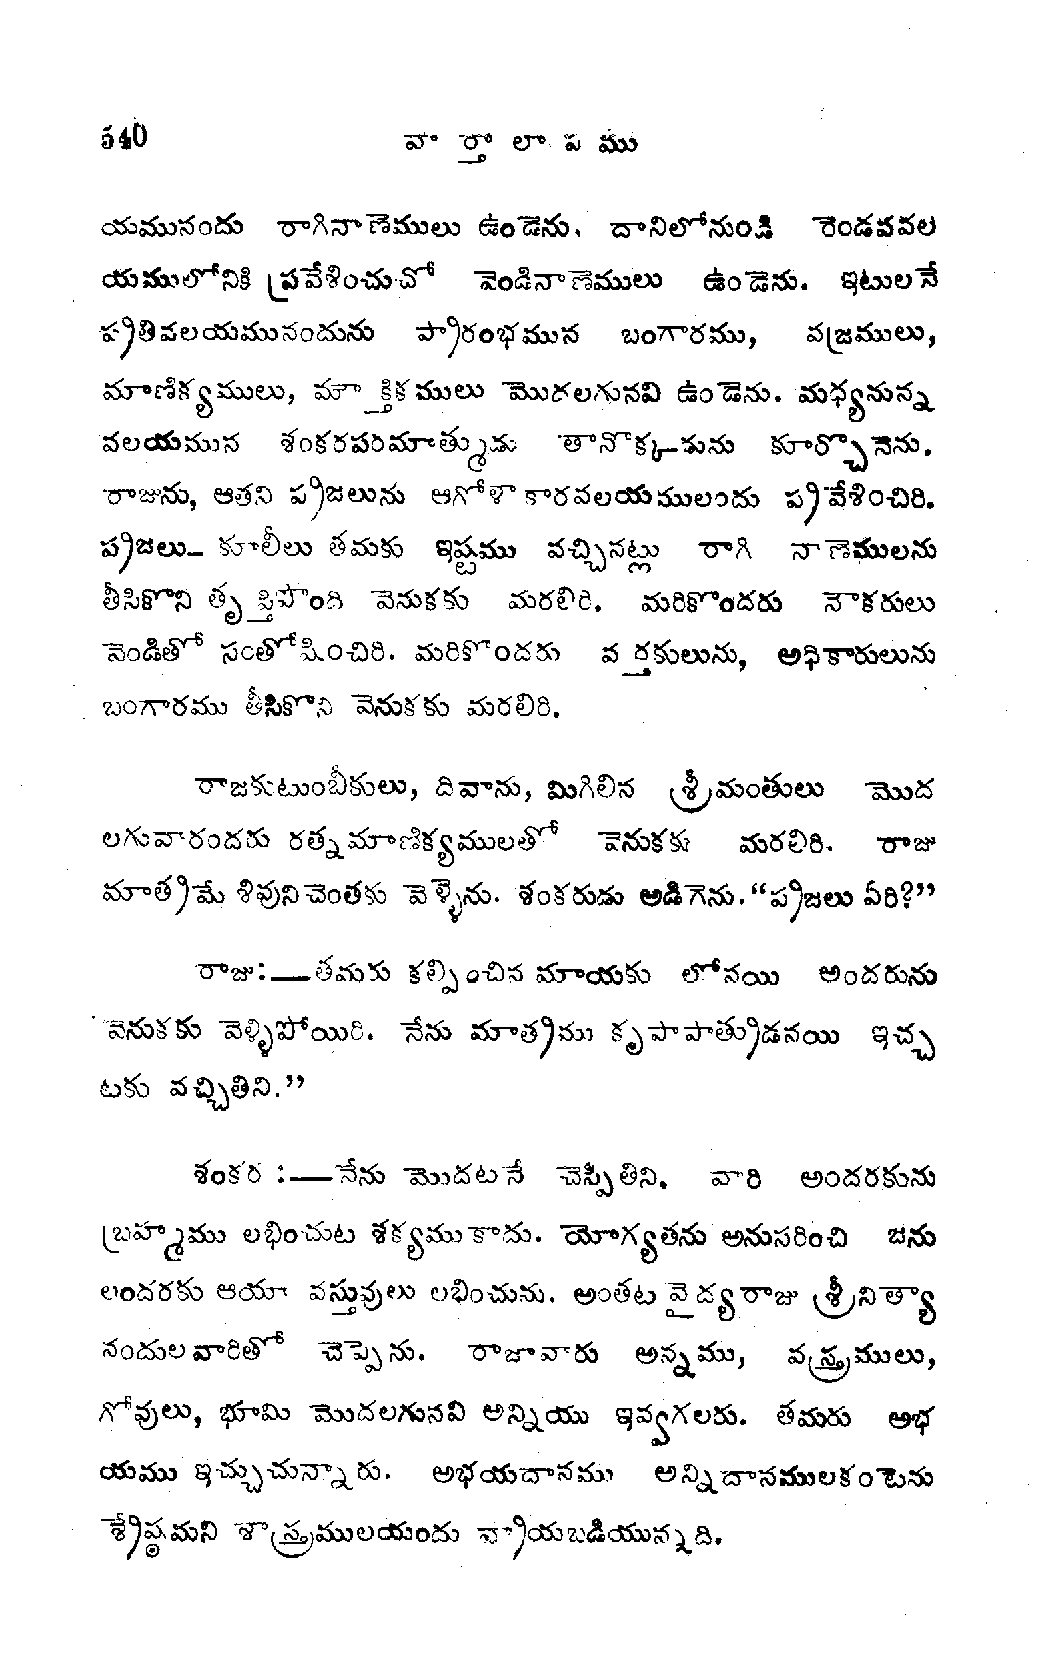 540 వార్తాలాపము
యమునందు రాగినాణెములు ఉండెను. దానిలోనుండి రెండవవల
యములోనికి ప్రవేశించుచో వెండినాణెములు ఉండెను. ఇటులనే
ప్రతివలయమునందును ప్రారంభమున బంగారము, వజ్రములు,
మాణిక్యములు, మౌక్తికములు మొదలగునవి ఉండెను. మధ్యనున్న
వలయమున శంకరపరమాత్ముడు తానొక్కడును కూర్చొనెను.
రాజును, ఆతని ప్రజలును ఆగోళాకారవలయములందు ప్రవేశించిరి.
ప్రజలు– కూలీలు తమకు ఇష్టము వచ్చినట్లు రాగి నాణెములను
తీసికొని తృప్తిపొంది వెనుకకు మరలిరి. మరికొందరు నౌకరులు
వెండితో సంతోషించిరి. మరికొందరు వర్తకులును, అధికారులును
బంగారము తీసికొని వెనుకకు మరలిరి.
రాజకుటుంబీకులు, దివాను, మిగిలిన శ్రీమంతులు మొద
లగువారందరు రత్నమాణిక్యములతో వెనుకకు మరలిరి. రాజు
మాత్రమే శివునిచెంతకు వెళ్ళెను. శంకరుడు అడిగెను.“ప్రజలు ఏరి?”
రాజు:—తమరు కల్పించిన మాయకు లోనయి అందరును
వెనుకకు వెళ్ళిపోయిరి. నేను మాత్రము కృపాపాత్రుడనయి ఇచ్చ
టకు వచ్చితిని.”
శంకర :—నేను మొదటనే చెప్పితిని. వారి అందరకును
బ్రహ్మము లభించుట శక్యముకాదు. యోగ్యతను అనుసరించి జను
లందరకు ఆయా వస్తువులు లభించును. అంతట వైద్యరాజు శ్రీనిత్యా
నందులవారితో చెప్పెను. రాజావారు అన్నము, వస్త్రములు,
గోవులు, భూమి మొదలగునవి అన్నియు ఇవ్వగలరు. తమరు అభ
యము ఇచ్చుచున్నారు. అభయదానము అన్నిదానములకంటెను
శ్రేష్ఠమని శాస్త్రములయందు వ్రాయబడియున్నది.